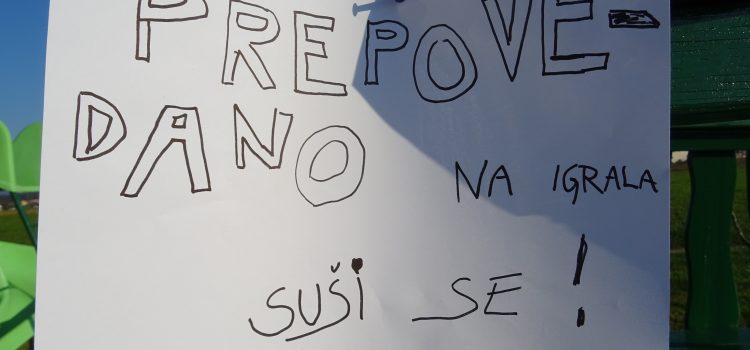 PREPOVE-
DANO
NA IGRALA
SUŠI SE!